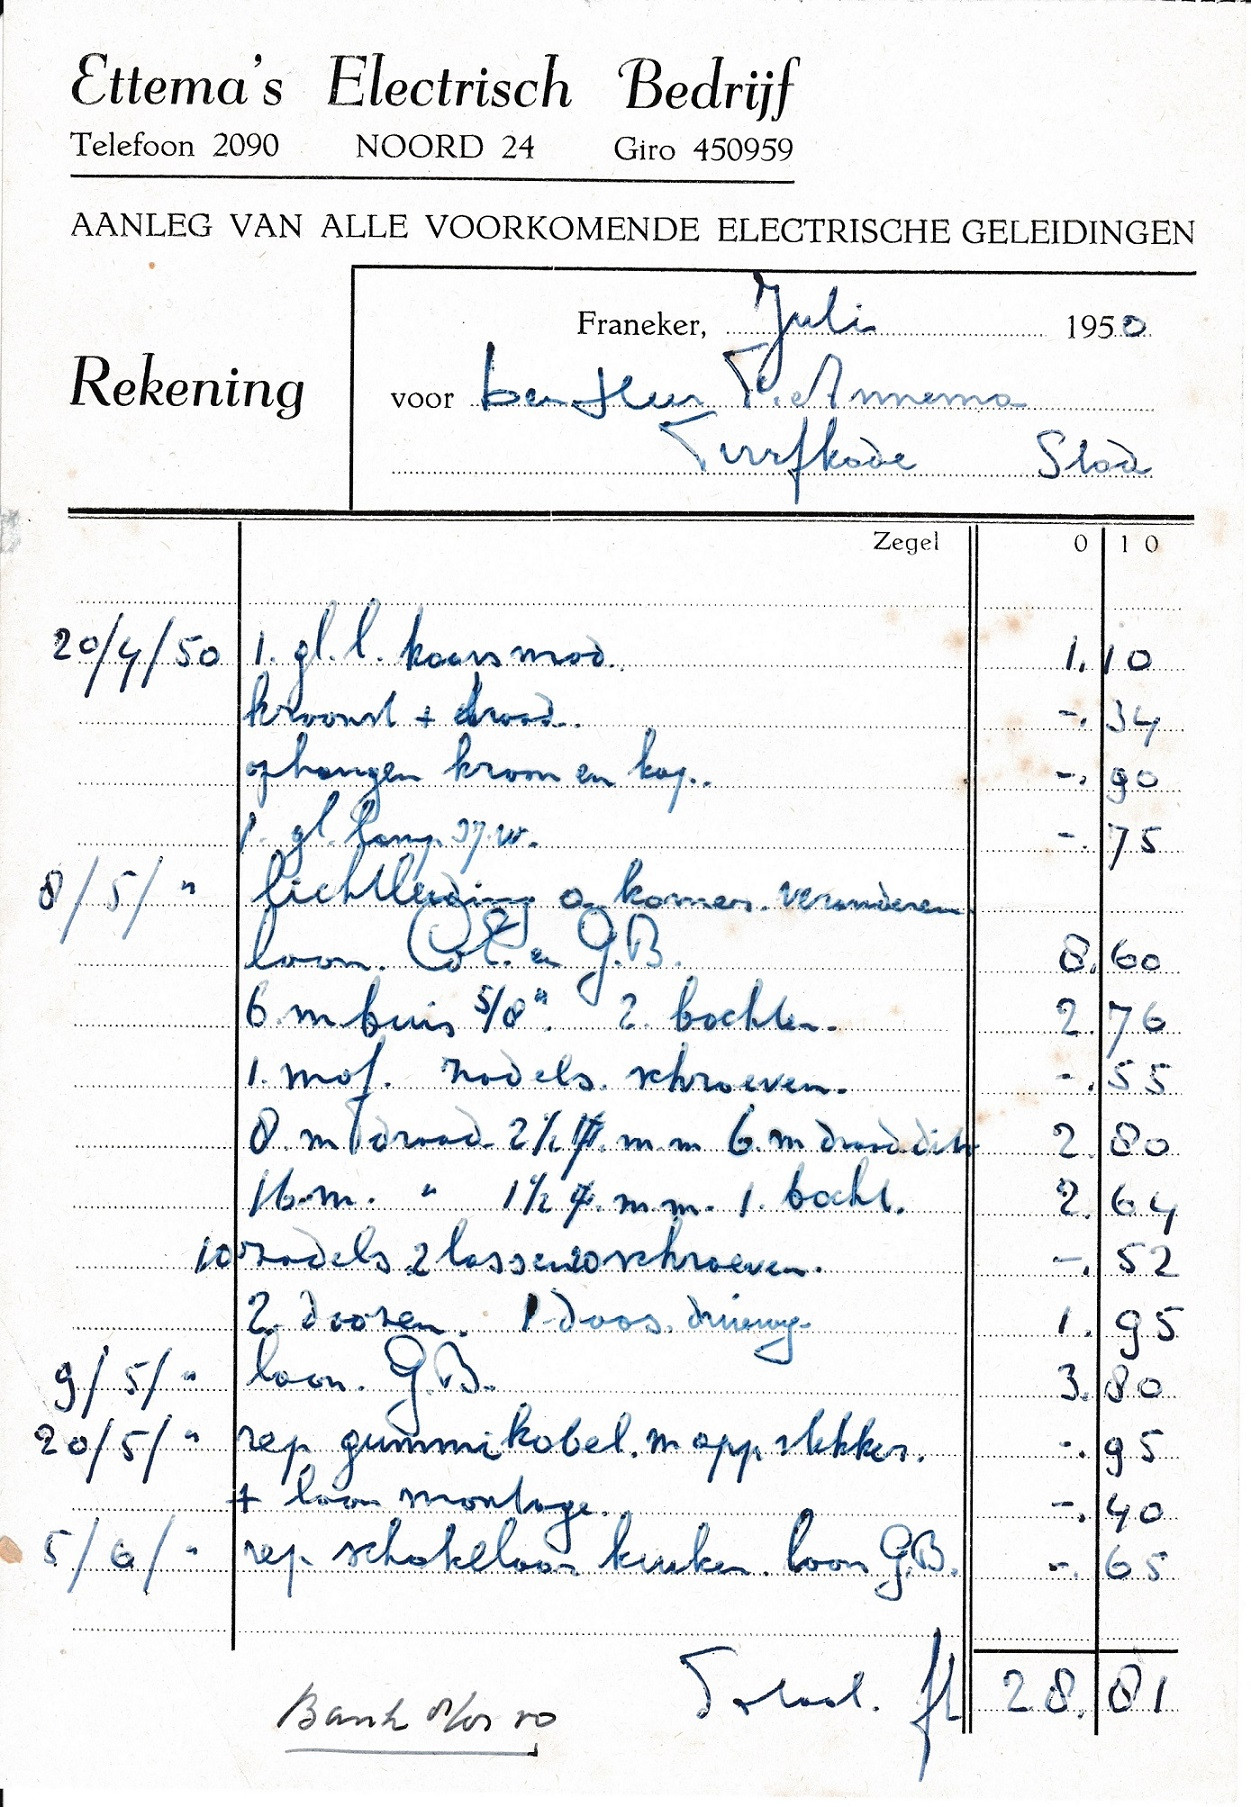 Ettema's Electrisch Bedrijf
Telefoon 2090 NOORD 24 Giro 450959
AANLEG VAN ALLE VOORKOMENDE ELECTRISCHE GELEIDINGEN
Franeker, Juli 1950
Rekening
voor den Heer P. Annema
Turfkade Stad
Zegel 0 10
20/4/50 1. gl. l. kaarsmod. 1.10
kroonst + draad. -.34
ophangen kroon en kap. -.90
1. gl. lamp. -.75
8/5/" lichtleiding kamers veranderen.
loon. en G.B. 8.60
6 m buis 5/8". 2. bochten. 2.76
1. mof. zadels. schroeven. -.55
8 m draad 2½ m.m. 6. m draad dito 2.80
16 m. " 1½ m.m. 1. bocht. 2.64
10 zadels 2 lassen 20 schroeven. -.52
2 doozen. 1 doos. 1.95
9/5/" loon. G.B. 3.80
20/5/" rep gummikabel. m app stekker. -.95
+ loon montage. -.40
5/6/" rep. schakelaar keuken. loon G.B. -.65
Totaal. fl 28.81
Bank